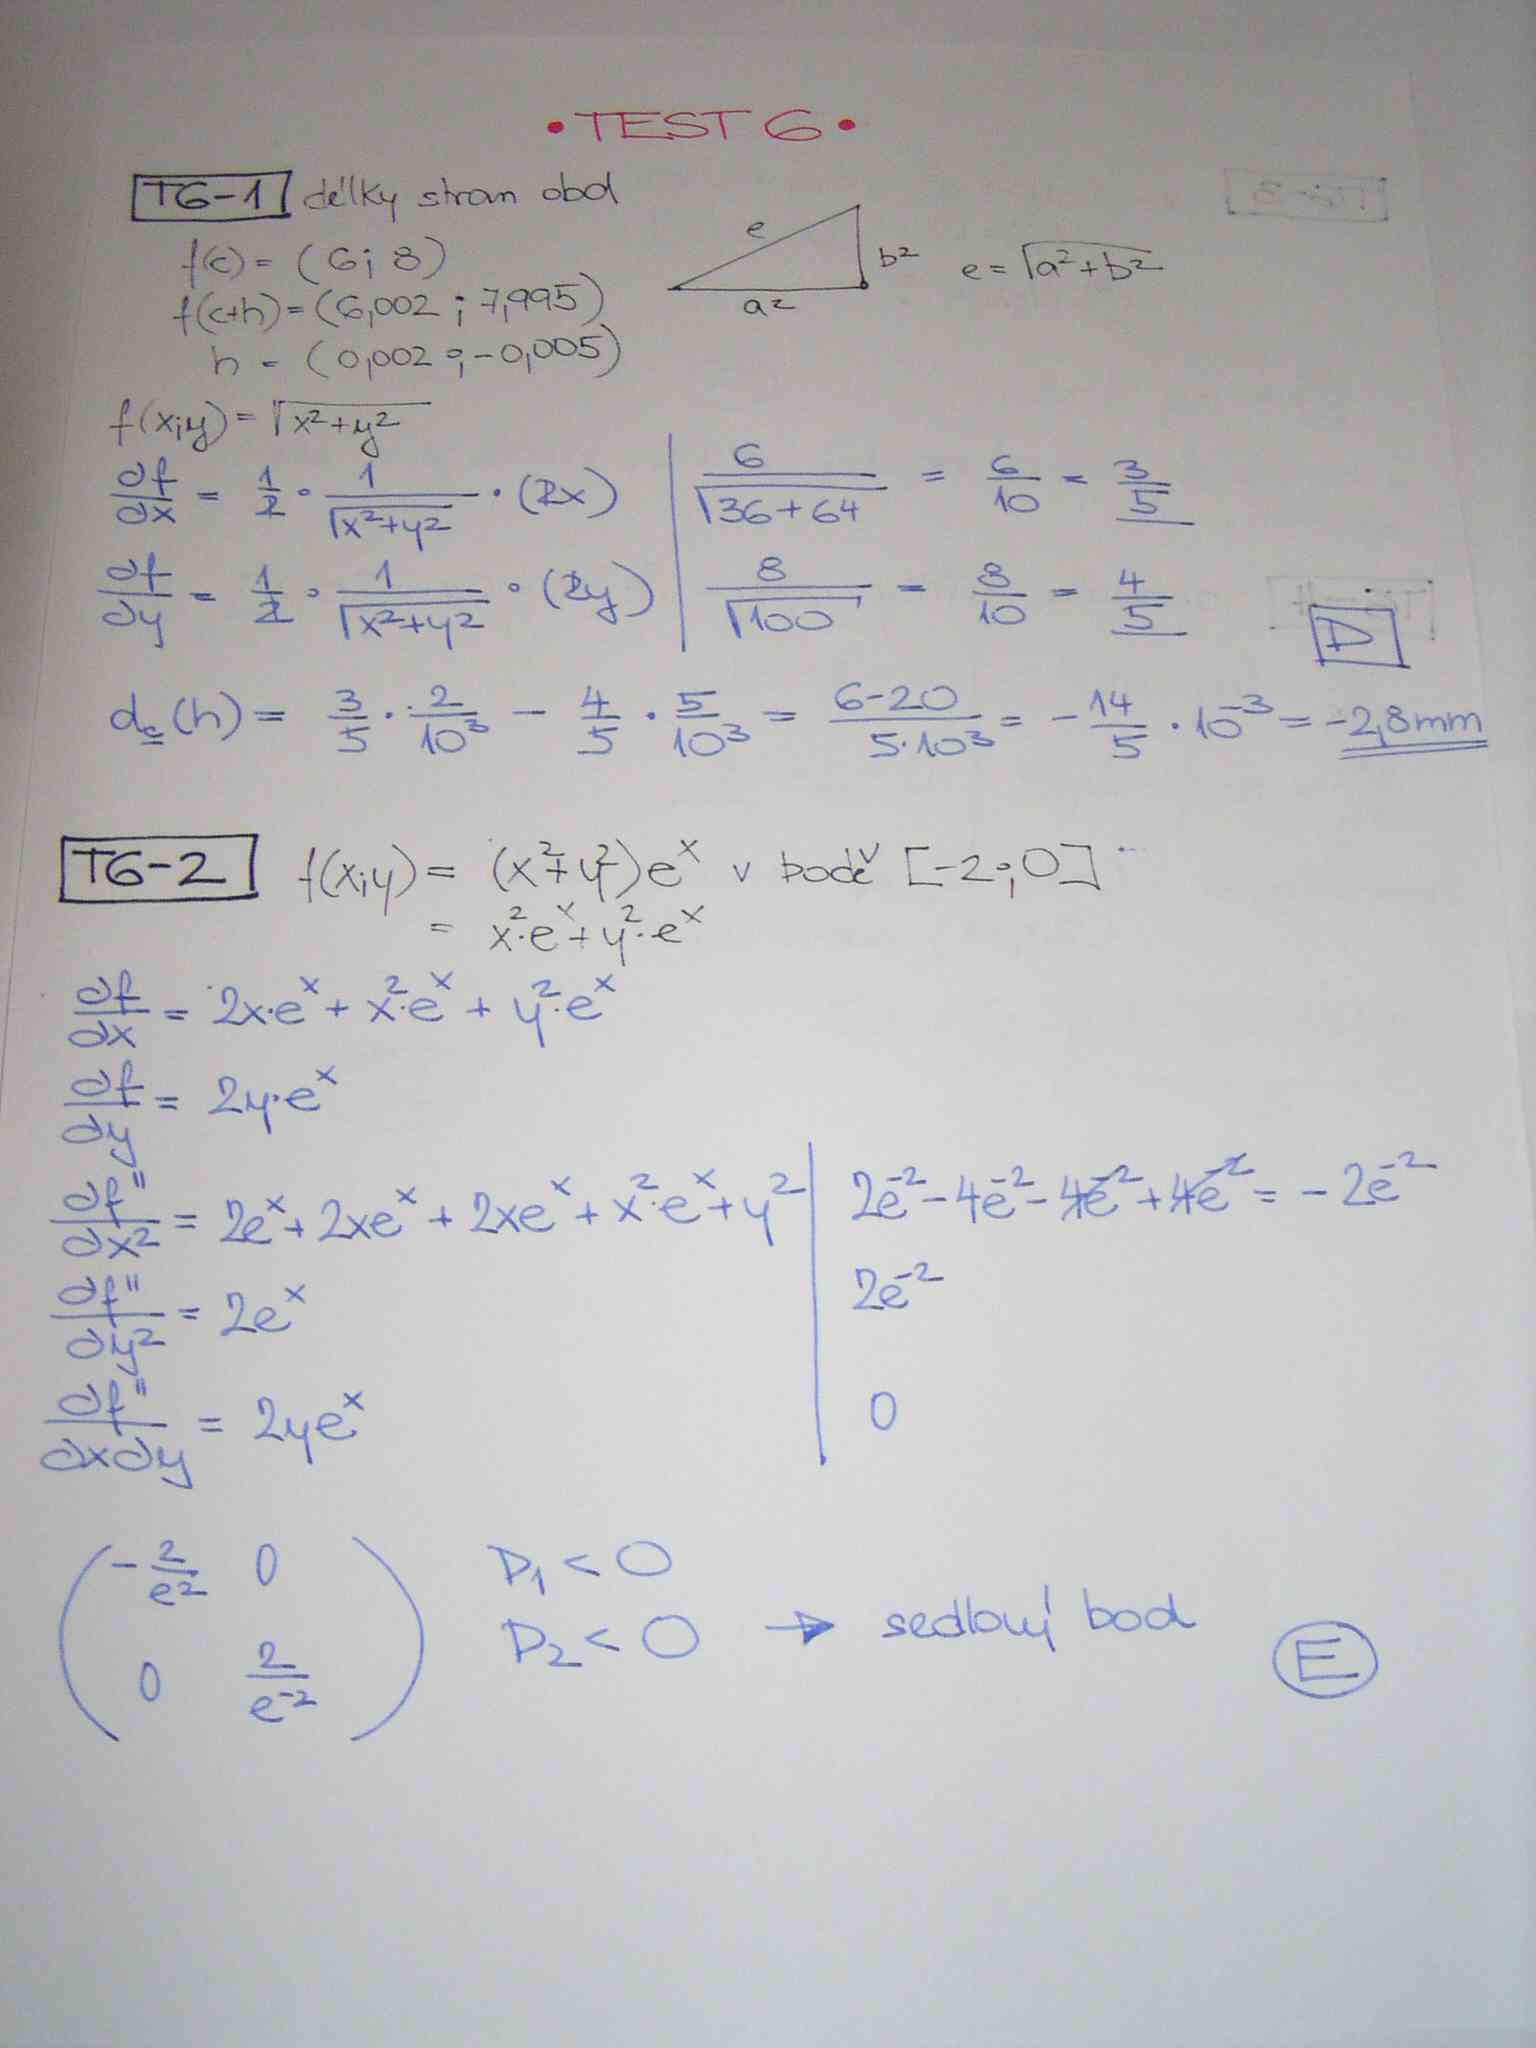 • TEST 6 •
T6-1 délky stran obd
f(c) = (6; 8)
f(c+h) = (6,002 ; 7,995)
h = (0,002 ; -0,005)
e b² a² e = √a²+b²
f(x;y) = √x²+y²
∂f/∂x = 1/2 · 1/√x²+y² · (2x) | 6/√36+64 = 6/10 = 3/5
∂f/∂y = 1/2 · 1/√x²+y² · (2y) | 8/√100 = 8/10 = 4/5
D
d_c(h) = 3/5 · 2/10³ - 4/5 · 5/10³ = 6-20/5·10³ = -14/5 · 10⁻³ = -2,8mm
T6-2 f(x;y) = (x²+y²)eˣ v bodě [-2;0]
= x²·eˣ+y²·eˣ
∂f/∂x = 2x·eˣ + x²·eˣ + y²·eˣ
∂f/∂y = 2y·eˣ
∂f"/∂x² = 2eˣ + 2xeˣ + 2xeˣ + x²·eˣ + y² | 2e⁻² - 4e⁻² - 4e⁻² + 4e⁻² = -2e⁻²
∂f"/∂y² = 2eˣ | 2e⁻²
∂f"/∂x∂y = 2yeˣ | 0
(-2/e² 0 D₁ < 0
0 2/e⁻²) D₂ < 0 → sedlový bod E